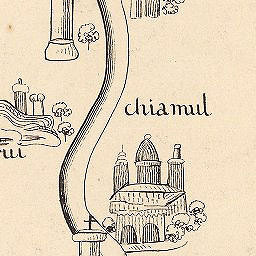 chiamul
rui